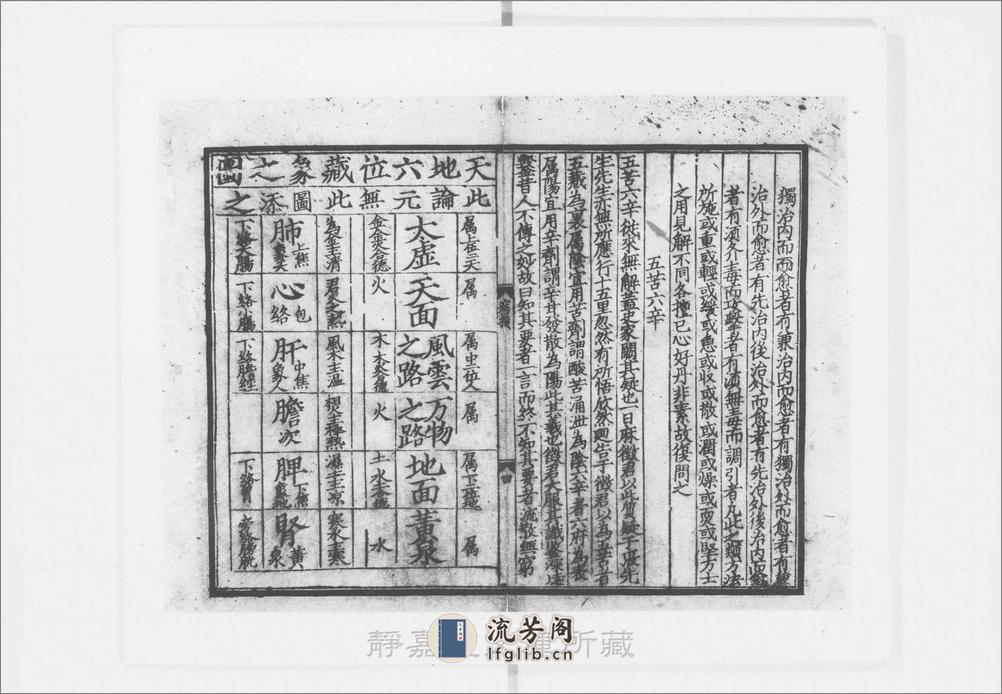 獨治內而愈者有兼治內而愈者有獨治外而愈者有兼
治外而愈者有先治內後治外而愈者有先治外後治內而愈
者有須冷毒而攻擊者有須無毒而調引者凡此之類方法
所施或重或輕或緩或急或收或散或潤或燥或耎或堅方士
之用見解不同各擅己心好丹非素故復問之
五苦六辛
五苦六辛從來無解蓋史家闕其疑也一日麻徵君以此質疑于張先
生先生亦無所應行十五里忽然有所悟欣然迴告于徵君以為五苦者
五藏為裏屬陰宜用苦劑謂酸苦涌泄為陰六辛者六府為表
屬陽宜用辛劑謂辛甘發散為陽此其義也徵君大服其識鑒深遠
鑿昔人不傳之妙故曰知其要者一言而終不知其要者流散無窮
天地六位藏象之圖
此論元無此圖添之
屬上位天 屬 屬中位人 屬 屬下位地 屬
太虛 天面 風雲之路 万物之路 地面 黃泉
金金災德 火 木木災德 火 土水災德 水
為金主清 君火主熱 風木主溫 相火主極熱 濕土主涼 寒水主寒
肺上焦象天 心包絡 肝中焦象人 膽次 脾下焦象地 腎黃泉
下絡大腸 下絡小腸 下絡膽經 下絡胃
靜嘉 所藏
流芳阁
lfglib.cn